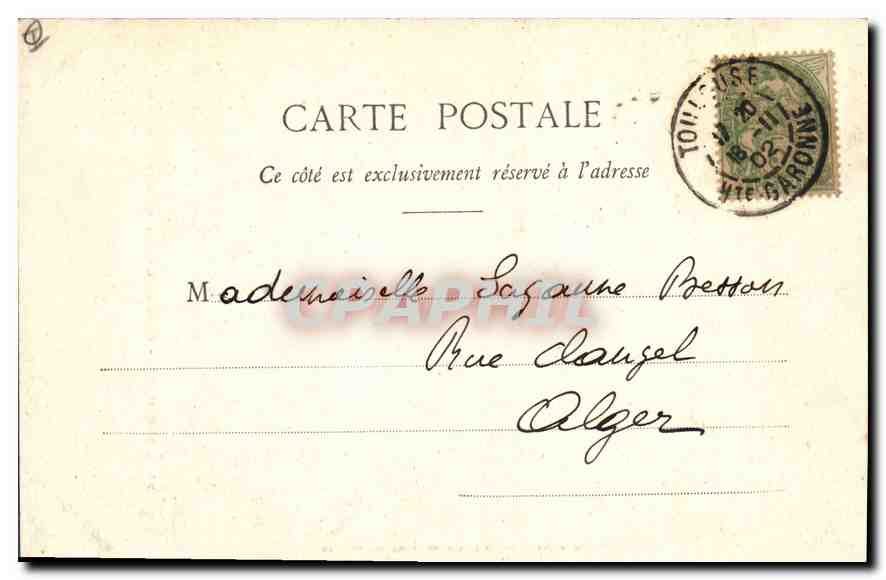 CARTE POSTALE
Ce côté est exclusivement réservé à l'adresse
TOULOUSE
HTE GARONNE
17 20
18 -11
02
Mademoiselle Suzanne Besson
Rue
Alger
CPAPHIL